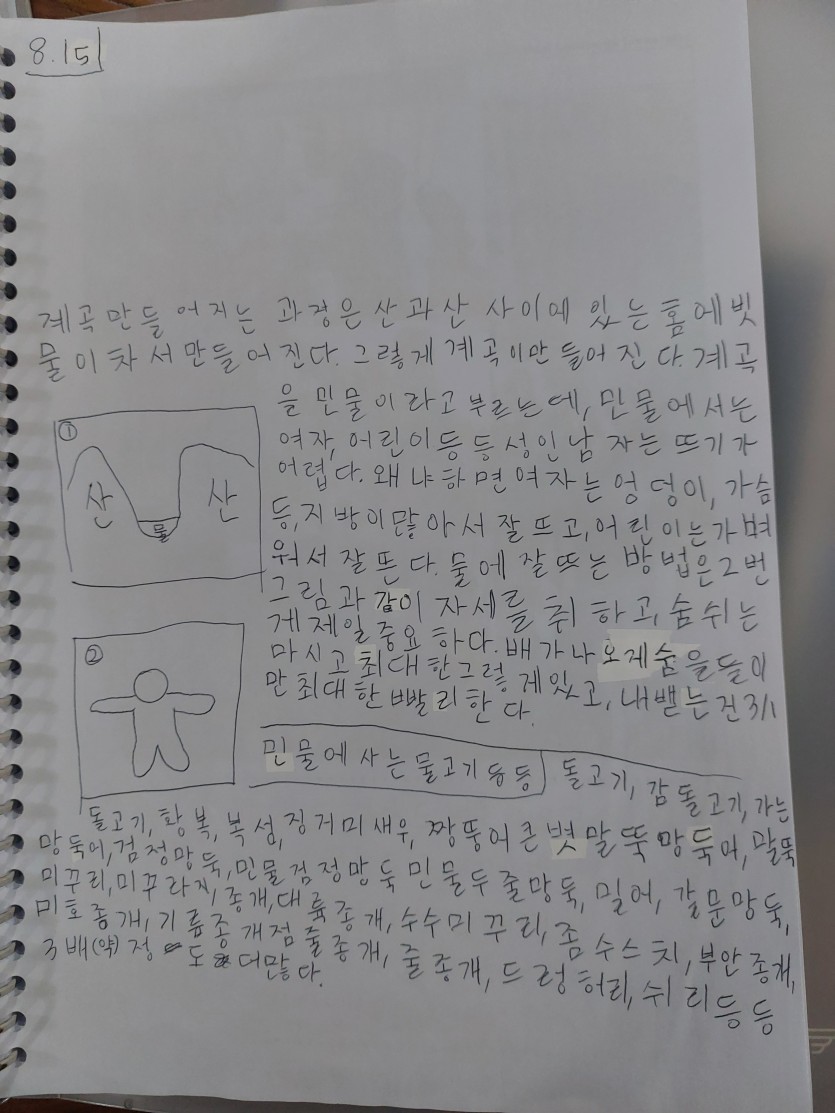 8.15
계곡 만들어지는 과정은 산과 산 사이에 있는 홈에 빗
물이 차서 만들어진다. 그렇게 계곡이 만들어진다. 계곡
을 민물이라고 부르는데, 민물에서는
여자, 어린이 등등 성인 남자는 뜨기가
어렵다. 왜냐하면 여자는 엉덩이, 가슴
등, 지방이 많아서 잘 뜨고, 어린이는 가벼
워서 잘 뜬다. 물에 잘 뜨는 방법은 2번
그림과 같이 자세를 취하고, 숨 쉬는
게 제일 중요하다. 배가 나오게 숨을 들이
마시고 최대한 그렇게 있고, 내뱉는 건 3/1
만 최대한 빨리 한다.
①
산
물
산
②
민물에 사는 물고기 등등
돌고기, 감돌고기, 가는
돌고기, 황복, 복섬, 징거미새우, 짱뚱어 큰볏말뚝망둑어, 말뚝
망둑어, 검정망둑, 민물검정망둑 민물두줄망둑, 밀어, 갈문망둑,
미꾸리, 미꾸라지, 종개, 대륙종개, 수수미꾸리, 좀수수치, 부안종개,
미호종개, 기름종개 점줄종개, 줄종개, 드렁허리, 쉬리 등등
3배(약) 정도 더 많다.